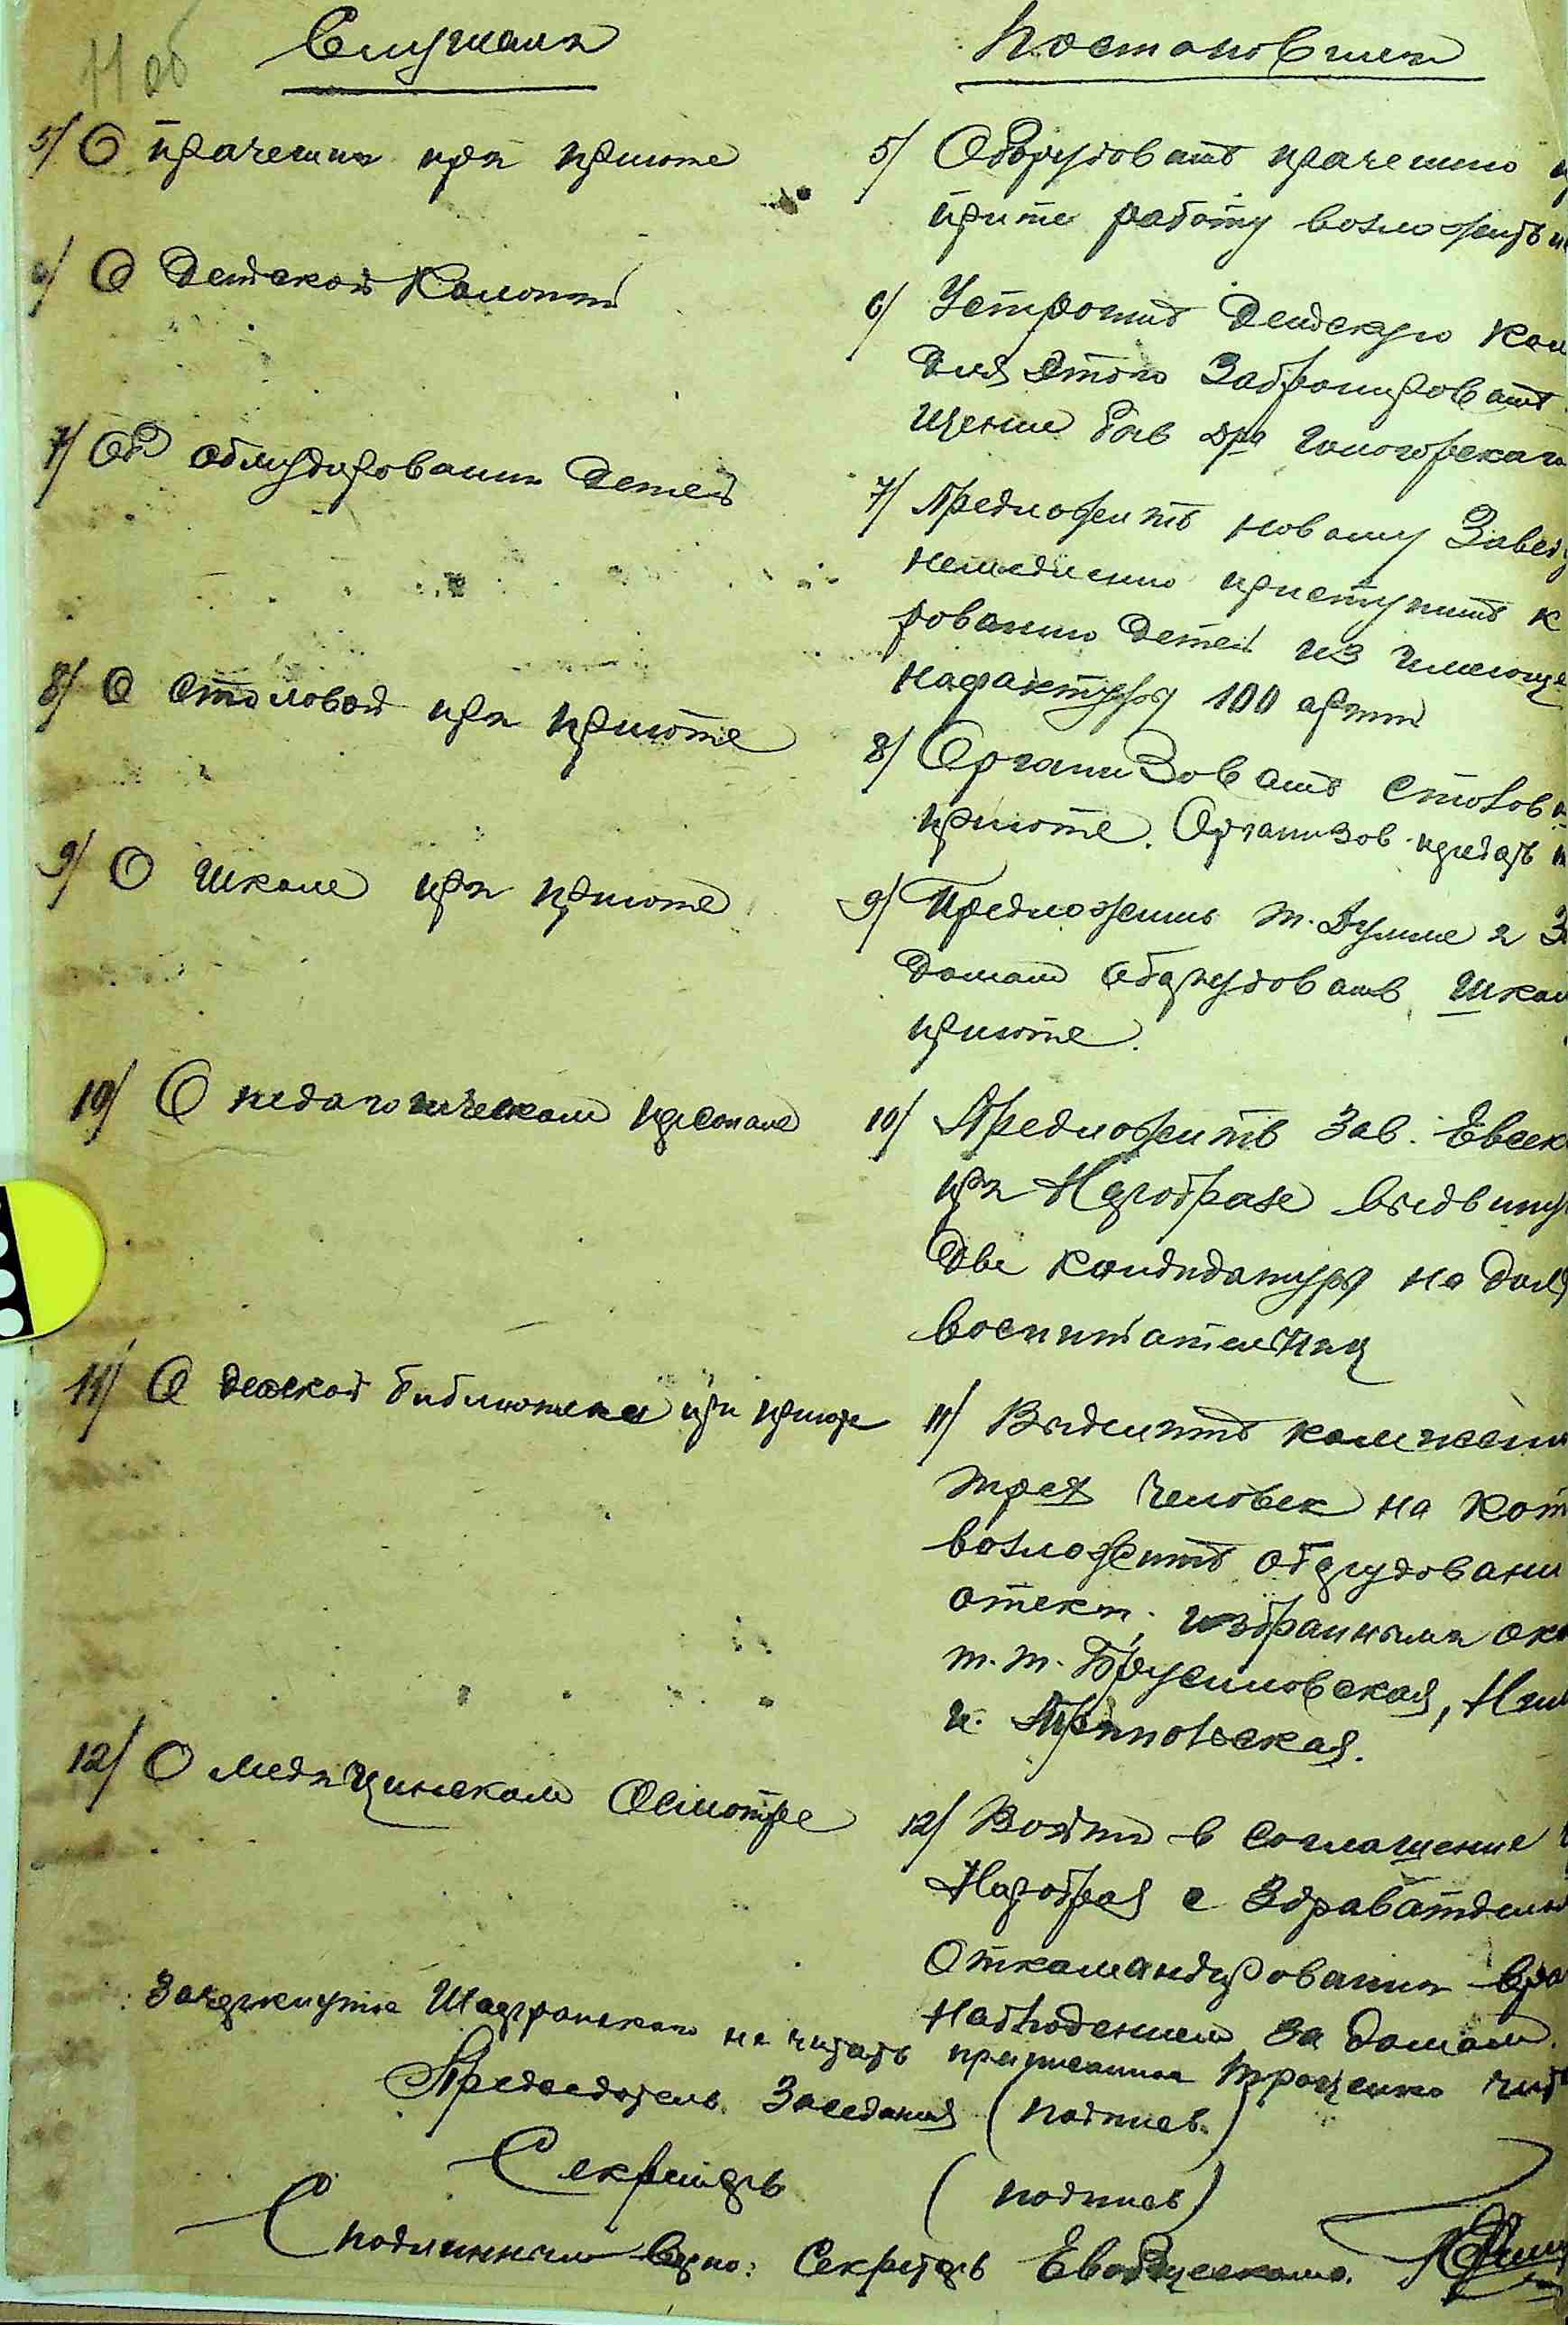 11 об
Слушали
Постановили
5/ О прачешни при приюте
5/ Оборудовать прачешню
приюте работу возложить
6/ О Детской Колонии
6/ Устроить Детскую Кол
Для этого Забронировать
щение быв дра Гоногорскаго
7/ Об обмундировании Детей
7/ Предложить новому Завед
немедленно приступить к
рованию Детей из имеюще
нафактуры 100 аршин
8/ О столовой при приюте
8/ Организовать столов
приюте. Организов. придать
9/ О Школе при приюте
9/ Предложить т. и За
Домам оборудовать Школ
приюте.
10/ О педагогическом персонале
10/ Предложить Зав. Евсек
при Наробразе выдвинут
Две кандидатуры на Дол
воспитательниц
11/ О детской библиотеке при приюте
11/ Выделить комиссию
трех человек на кот
возложить оборудовани
отеки; избранными ока
т.т. Брусиловская,
и
12/ О медицинском Осмотре
12/ Войти в соглашение
Наробраз с Здравотделом
Откомандировании вра
наблюдением за домом.
Зачеркнутое не читать приписанное Троценко чит
Председатель Заседания (подпись)
Секретарь (подпись)
С подлинным верно: Секретарь Евобщесткома.